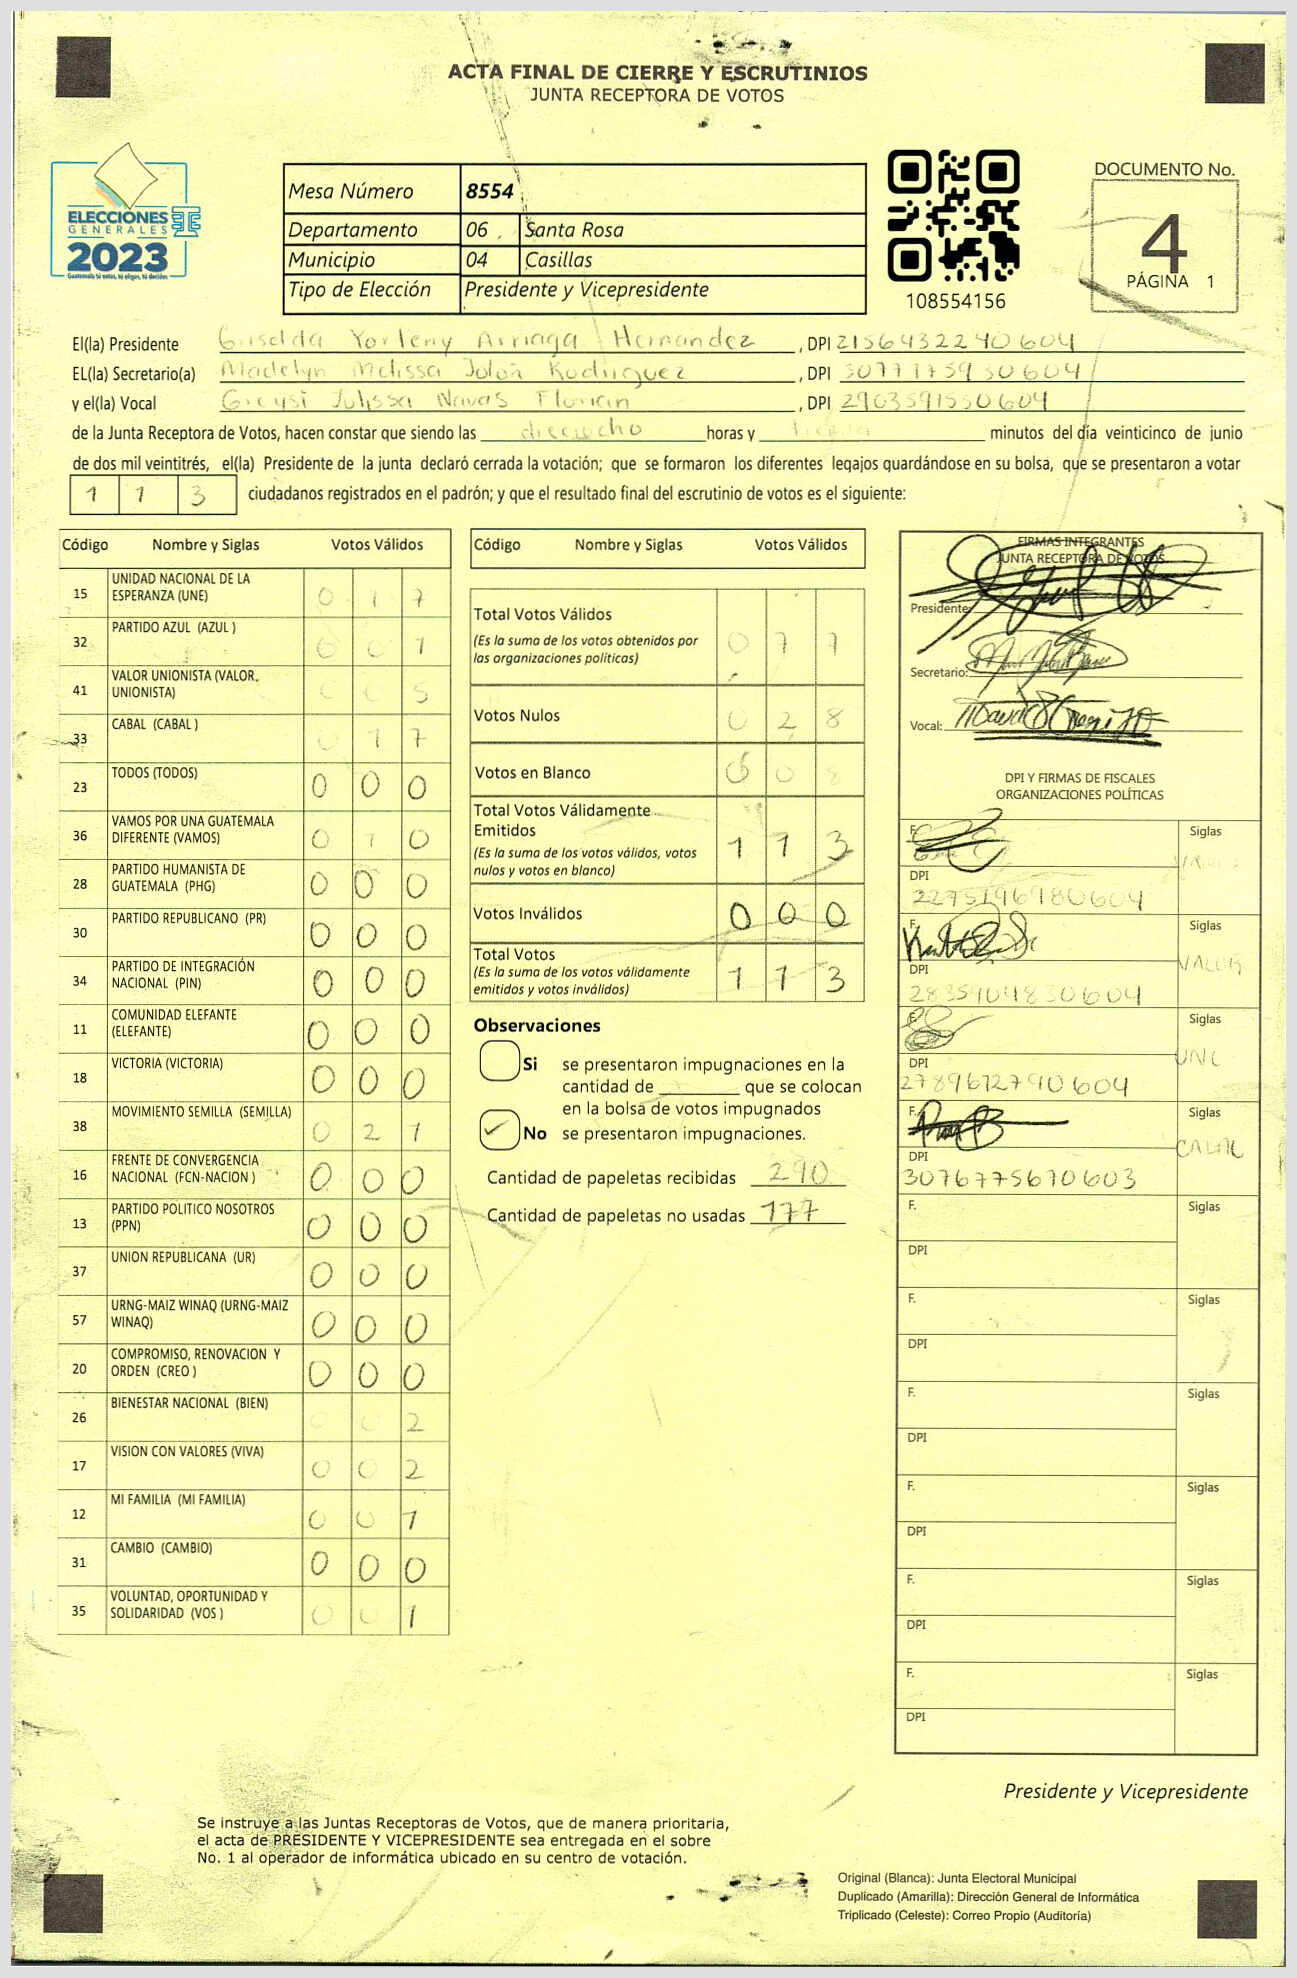 ACTA FINAL DE CIERRE Y ESCRUTINIOS
JUNTA RECEPTORA DE VOTOS
ELECCIONES
GENERALES
2023
Guatemala tú votas, tú eliges, tú decides
Mesa Número 8554
Departamento 06 Santa Rosa
Municipio 04 Casillas
Tipo de Elección Presidente y Vicepresidente
108554156
DOCUMENTO No.
4
PÁGINA 1
El(la) Presidente Griselda Yorleny Arriaga Hernandez , DPI 2156432240604
EL(la) Secretario(a) Madelyn Melissa Rodriguez , DPI 3077175930604
y el(la) Vocal Greysi Julissa Navas Florian , DPI 2903591550604
de la Junta Receptora de Votos, hacen constar que siendo las dieciocho horas y minutos del día veinticinco de junio
de dos mil veintitrés, el(la) Presidente de la junta declaró cerrada la votación; que se formaron los diferentes legajos guardándose en su bolsa, que se presentaron a votar
1 1 3 ciudadanos registrados en el padrón; y que el resultado final del escrutinio de votos es el siguiente:
Código Nombre y Siglas Votos Válidos
15 UNIDAD NACIONAL DE LA ESPERANZA (UNE) 0 1 7
32 PARTIDO AZUL (AZUL ) 0 0 1
41 VALOR UNIONISTA (VALOR, UNIONISTA) 0 0 5
33 CABAL (CABAL ) 0 1 7
23 TODOS (TODOS) 0 0 0
36 VAMOS POR UNA GUATEMALA DIFERENTE (VAMOS) 0 1 0
28 PARTIDO HUMANISTA DE GUATEMALA (PHG) 0 0 0
30 PARTIDO REPUBLICANO (PR) 0 0 0
34 PARTIDO DE INTEGRACIÓN NACIONAL (PIN) 0 0 0
11 COMUNIDAD ELEFANTE (ELEFANTE) 0 0 0
18 VICTORIA (VICTORIA) 0 0 0
38 MOVIMIENTO SEMILLA (SEMILLA) 0 2 1
16 FRENTE DE CONVERGENCIA NACIONAL (FCN-NACION ) 0 0 0
13 PARTIDO POLITICO NOSOTROS (PPN) 0 0 0
37 UNION REPUBLICANA (UR) 0 0 0
57 URNG-MAIZ WINAQ (URNG-MAIZ WINAQ) 0 0 0
20 COMPROMISO, RENOVACION Y ORDEN (CREO ) 0 0 0
26 BIENESTAR NACIONAL (BIEN) 0 0 2
17 VISION CON VALORES (VIVA) 0 0 2
12 MI FAMILIA (MI FAMILIA) 0 0 1
31 CAMBIO (CAMBIO) 0 0 0
35 VOLUNTAD, OPORTUNIDAD Y SOLIDARIDAD (VOS ) 0 0 1
Código Nombre y Siglas Votos Válidos
Total Votos Válidos 0 7 7
(Es la suma de los votos obtenidos por
las organizaciones políticas)
Votos Nulos 0 2 8
Votos en Blanco 0 0 8
Total Votos Válidamente
Emitidos 1 1 3
(Es la suma de los votos válidos, votos
nulos y votos en blanco)
Votos Inválidos 0 0 0
Total Votos 1 1 3
(Es la suma de los votos válidamente
emitidos y votos inválidos)
Observaciones
Si se presentaron impugnaciones en la
cantidad de que se colocan
en la bolsa de votos impugnados
✓ No se presentaron impugnaciones.
Cantidad de papeletas recibidas 290
Cantidad de papeletas no usadas 177
FIRMAS INTEGRANTES
JUNTA RECEPTORA DE VOTOS
Presidente:
Secretario:
Vocal:
DPI Y FIRMAS DE FISCALES
ORGANIZACIONES POLÍTICAS
F. Siglas
DPI
2275196980604
F. Siglas
VALOR
DPI
2835904830604
F. Siglas
UNE
DPI
2789612790604
F. Siglas
CABAL
DPI
3076775670603
F. Siglas
DPI
F. Siglas
DPI
F. Siglas
DPI
F. Siglas
DPI
F. Siglas
DPI
F. Siglas
DPI
Presidente y Vicepresidente
Se instruye a las Juntas Receptoras de Votos, que de manera prioritaria,
el acta de PRESIDENTE Y VICEPRESIDENTE sea entregada en el sobre
No. 1 al operador de informática ubicado en su centro de votación.
Original (Blanca): Junta Electoral Municipal
Duplicado (Amarilla): Dirección General de Informática
Triplicado (Celeste): Correo Propio (Auditoría)